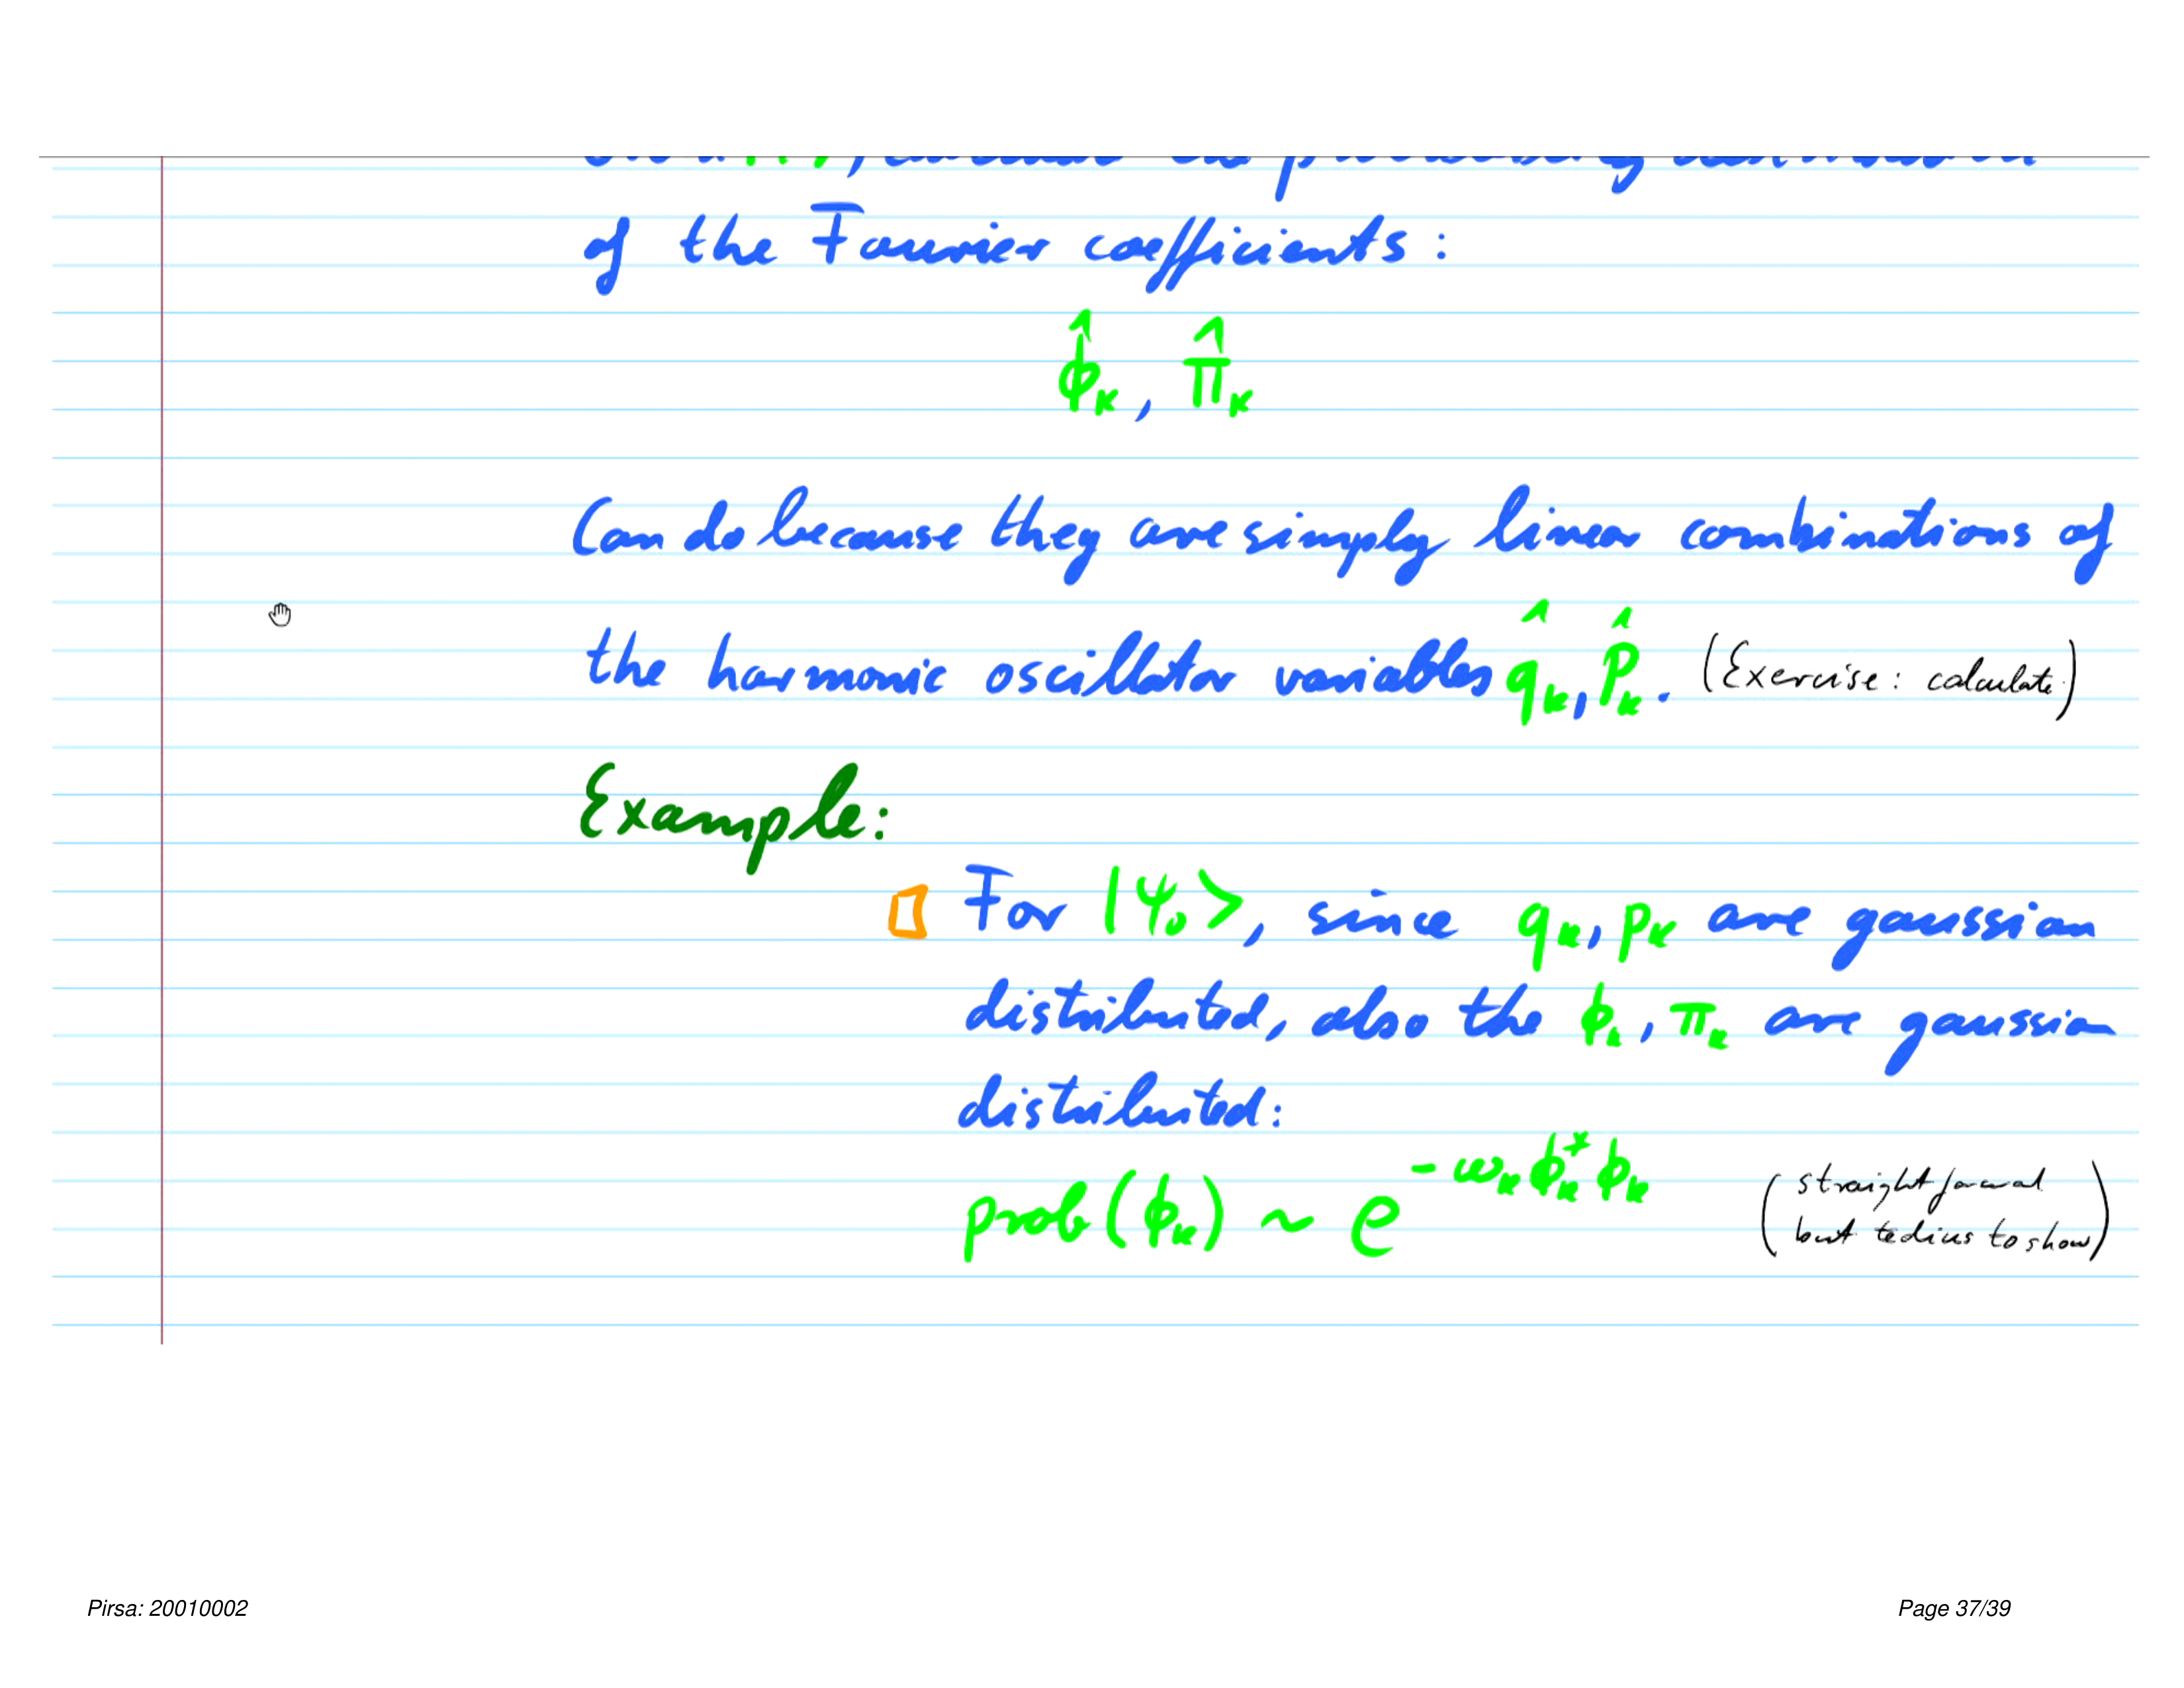 of the Fourier coefficients:
φ̂ₖ, π̂ₖ
Can do because they are simply linear combinations of
the harmonic oscillator variables q̂ₖ, p̂ₖ. (Exercise: calculate)
Example:
For |ψ₀⟩, since qₖ, pₖ are gaussian
distributed, also the φₖ, πₖ are gaussian
distributed:
prob(φₖ) ~ e^{-ωₖ φₖ* φₖ} (straightforward
but tedius to show)
Pirsa: 20010002
Page 37/39